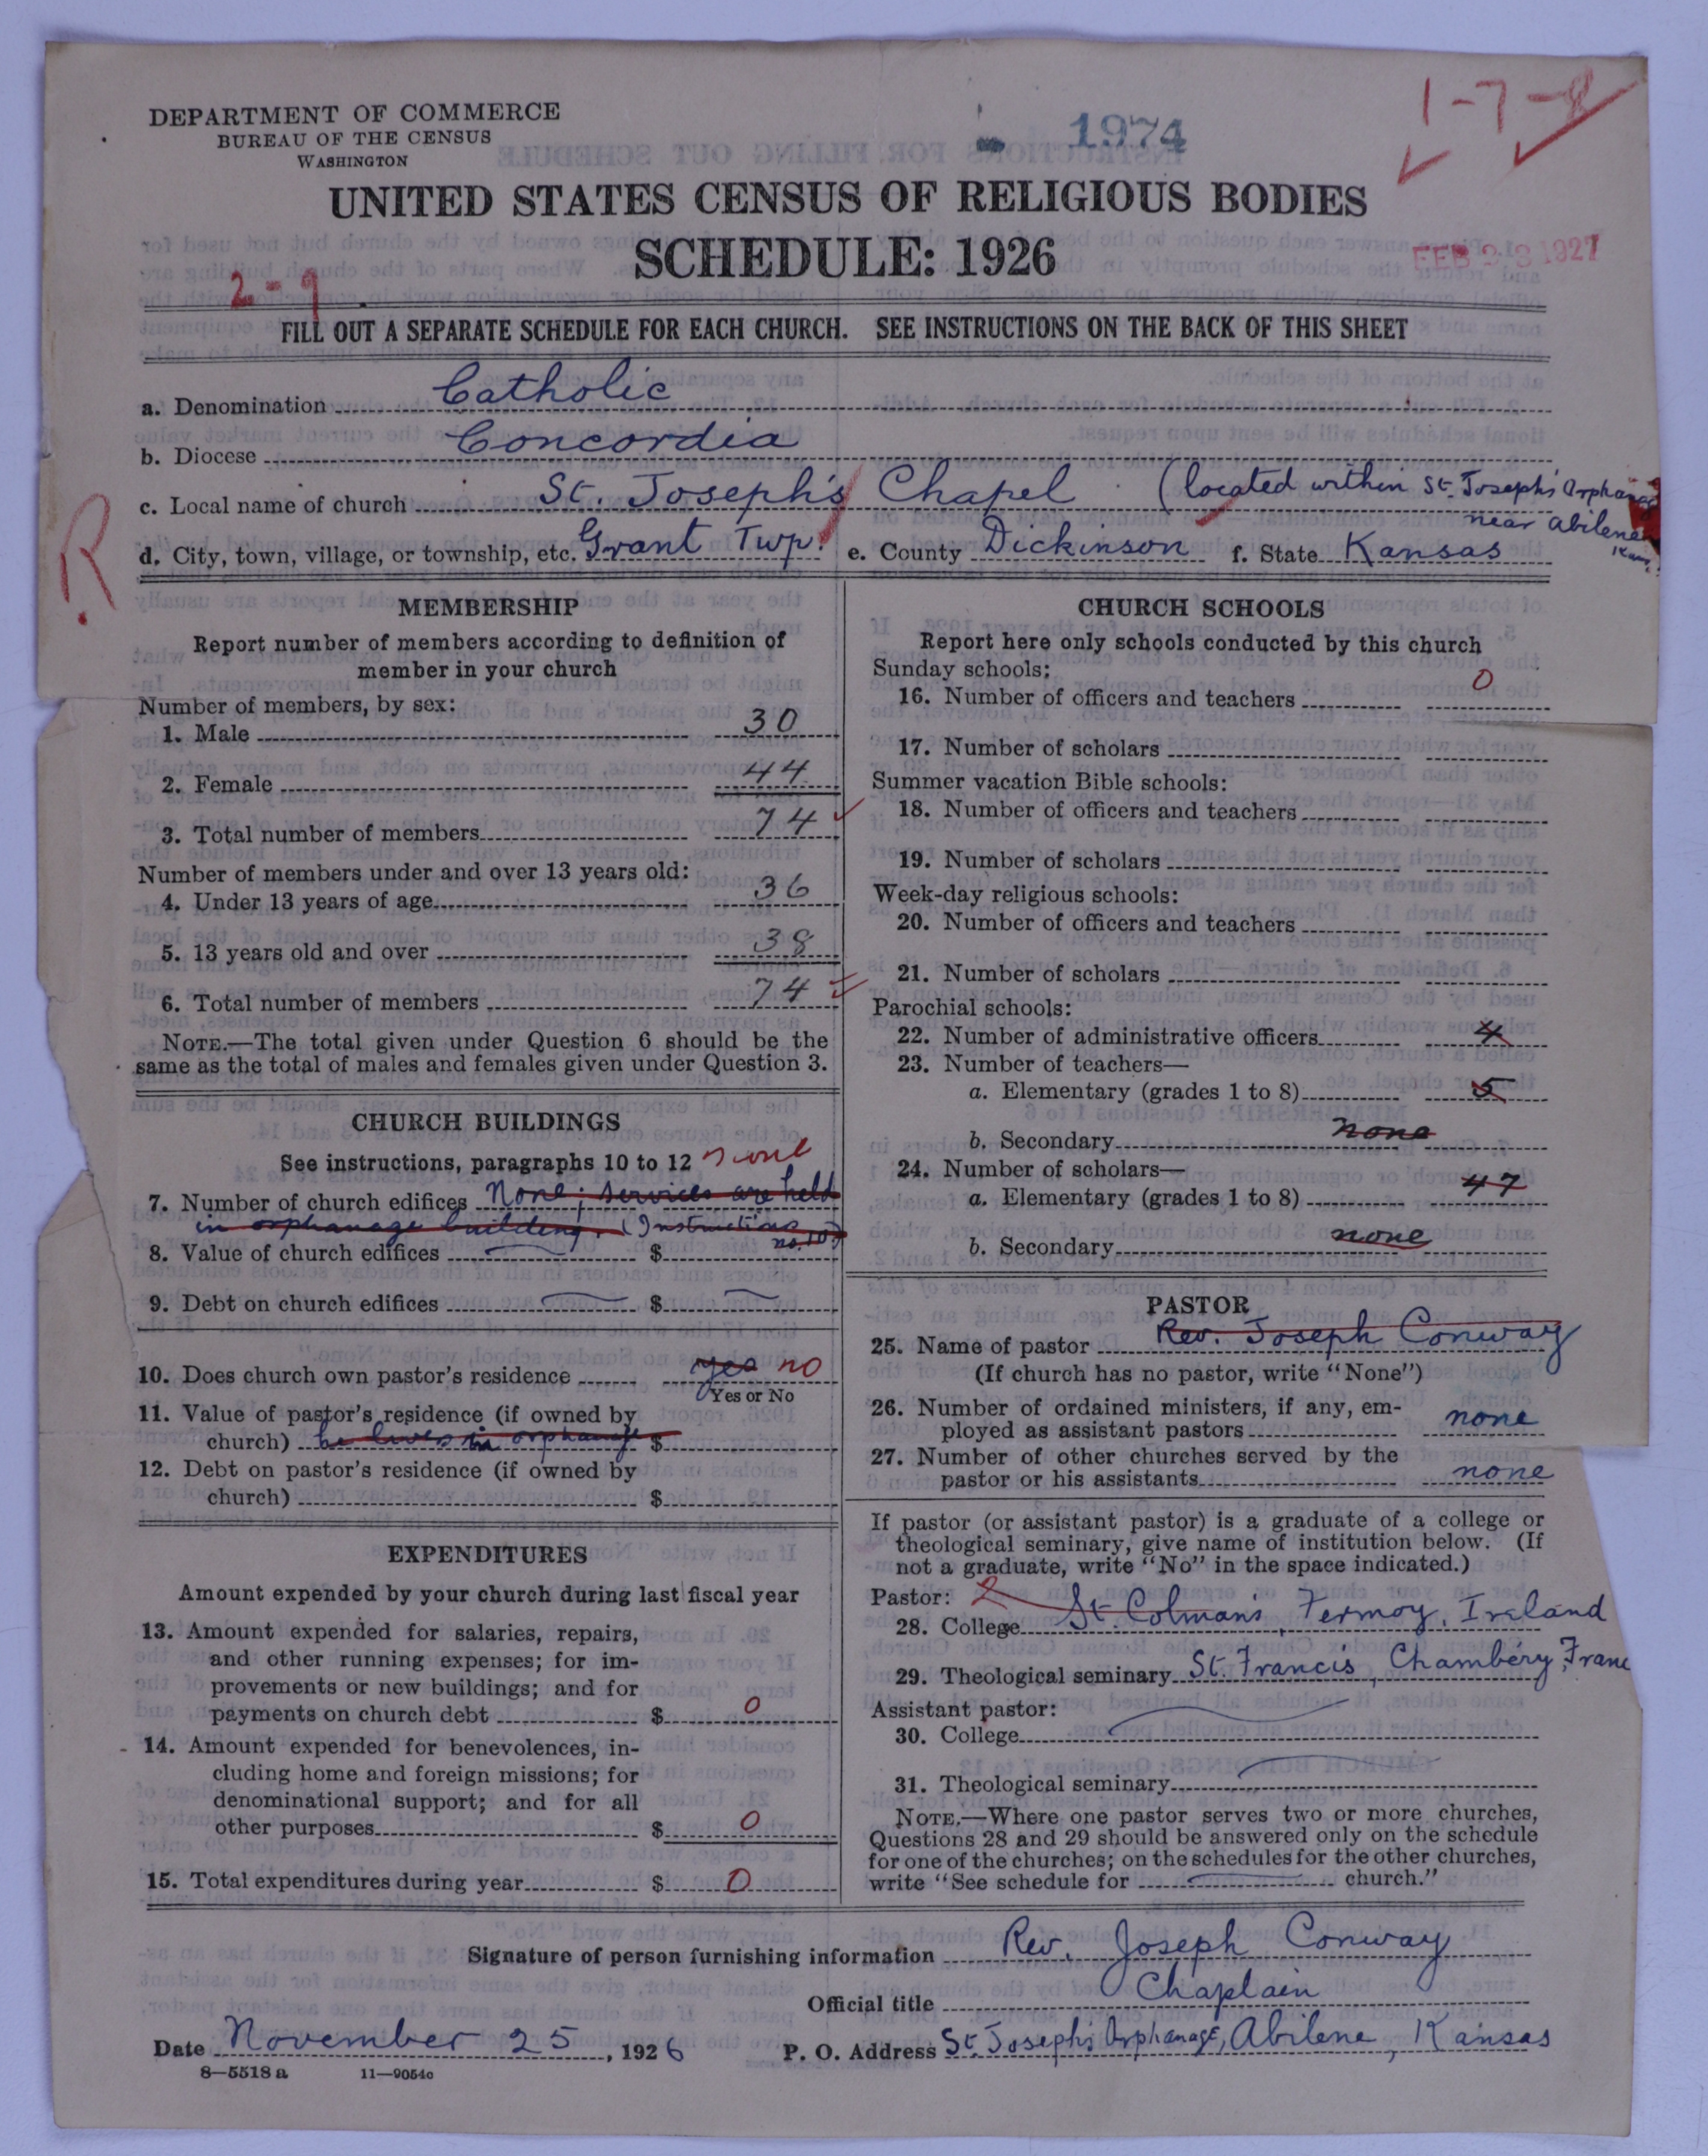 DEPARTMENT OF COMMERCE
BUREAU OF THE CENSUS
WASHINGTON
1974
1-7-8
UNITED STATES CENSUS OF RELIGIOUS BODIES
SCHEDULE: 1926
FEB 23 1927
2-9
FILL OUT A SEPARATE SCHEDULE FOR EACH CHURCH. SEE INSTRUCTIONS ON THE BACK OF THIS SHEET
a. Denomination Catholic
b. Diocese Concordia
c. Local name of church St. Joseph's Chapel (located within St. Joseph's Orphanage
near Abilene
Kans.
d. City, town, village, or township, etc. Grant Twp. e. County Dickinson f. State Kansas
R
MEMBERSHIP
Report number of members according to definition of
member in your church
Number of members, by sex:
1. Male 30
2. Female 44
3. Total number of members 74
Number of members under and over 13 years old:
4. Under 13 years of age 36
5. 13 years old and over 38
6. Total number of members 74
NOTE.—The total given under Question 6 should be the
same as the total of males and females given under Question 3.
CHURCH BUILDINGS
See instructions, paragraphs 10 to 12 none
7. Number of church edifices None; services are held
in orphanage building. (Instructions
no. 10)
8. Value of church edifices $
9. Debt on church edifices $
10. Does church own pastor's residence yes no
Yes or No
11. Value of pastor's residence (if owned by
church) he lives in orphanage $
12. Debt on pastor's residence (if owned by
church) $
EXPENDITURES
Amount expended by your church during last fiscal year
13. Amount expended for salaries, repairs,
and other running expenses; for im-
provements or new buildings; and for
payments on church debt $ 0
14. Amount expended for benevolences, in-
cluding home and foreign missions; for
denominational support; and for all
other purposes $ 0
15. Total expenditures during year $ 0
CHURCH SCHOOLS
Report here only schools conducted by this church
Sunday schools:
16. Number of officers and teachers 0
17. Number of scholars
Summer vacation Bible schools:
18. Number of officers and teachers
19. Number of scholars
Week-day religious schools:
20. Number of officers and teachers
21. Number of scholars
Parochial schools:
22. Number of administrative officers 4
23. Number of teachers—
a. Elementary (grades 1 to 8) 5
b. Secondary none
24. Number of scholars—
a. Elementary (grades 1 to 8) 47
b. Secondary none
PASTOR
25. Name of pastor Rev. Joseph Conway
(If church has no pastor, write "None")
26. Number of ordained ministers, if any, em-
ployed as assistant pastors none
27. Number of other churches served by the
pastor or his assistants none
If pastor (or assistant pastor) is a graduate of a college or
theological seminary, give name of institution below. (If
not a graduate, write "No" in the space indicated.)
Pastor: 2
28. College St. Colman's, Fermoy, Ireland
29. Theological seminary St. Francis', Chambéry, Franc
Assistant pastor:
30. College
31. Theological seminary
NOTE.—Where one pastor serves two or more churches,
Questions 28 and 29 should be answered only on the schedule
for one of the churches; on the schedules for the other churches,
write "See schedule for church."
Signature of person furnishing information Rev. Joseph Conway
Official title Chaplain
Date November 25, 1926 P. O. Address St. Joseph's Orphanage, Abilene, Kansas
8—5518 a 11—9054c